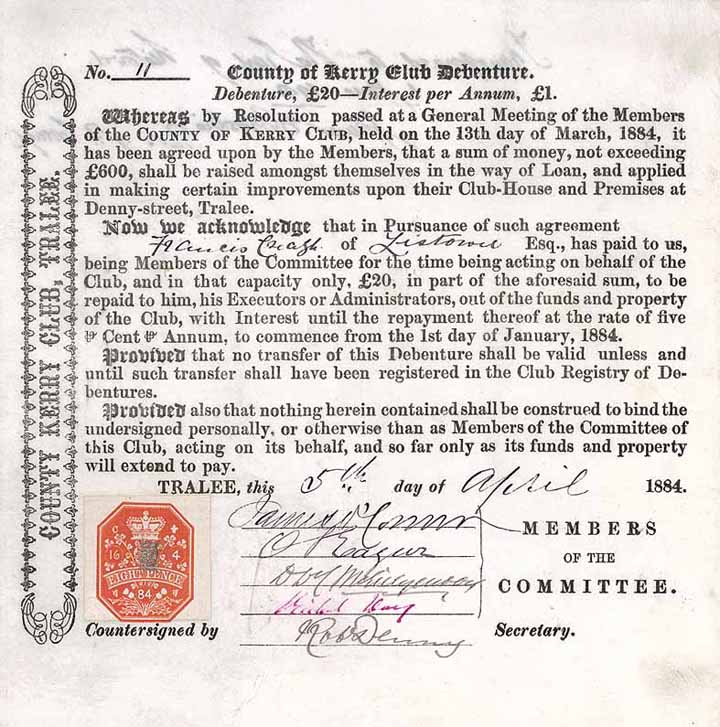 COUNTY KERRY CLUB, TRALEE.
No. 11 County of Kerry Club Debenture.
Debenture, £20—Interest per Annum, £1.
Whereas by Resolution passed at a General Meeting of the Members
of the COUNTY OF KERRY CLUB, held on the 13th day of March, 1884, it
has been agreed upon by the Members, that a sum of money, not exceeding
£600, shall be raised amongst themselves in the way of Loan, and applied
in making certain improvements upon their Club-House and Premises at
Denny-street, Tralee.
Now we acknowledge that in Pursuance of such agreement
Francis Creagh of Listowel Esq., has paid to us,
being Members of the Committee for the time being acting on behalf of the
Club, and in that capacity only, £20, in part of the aforesaid sum, to be
repaid to him, his Executors or Administrators, out of the funds and property
of the Club, with Interest until the repayment thereof at the rate of five
⅌ Cent ⅌ Annum, to commence from the 1st day of January, 1884.
Provided that no transfer of this Debenture shall be valid unless and
until such transfer shall have been registered in the Club Registry of De-
bentures.
Provided also that nothing herein contained shall be construed to bind the
undersigned personally, or otherwise than as Members of the Committee of
this Club, acting on its behalf, and so far only as its funds and property
will extend to pay.
TRALEE, this 5th day of April 1884.
EIGHT PENCE
84
MEMBERS
OF THE
COMMITTEE.
Countersigned by Rob Denny Secretary.